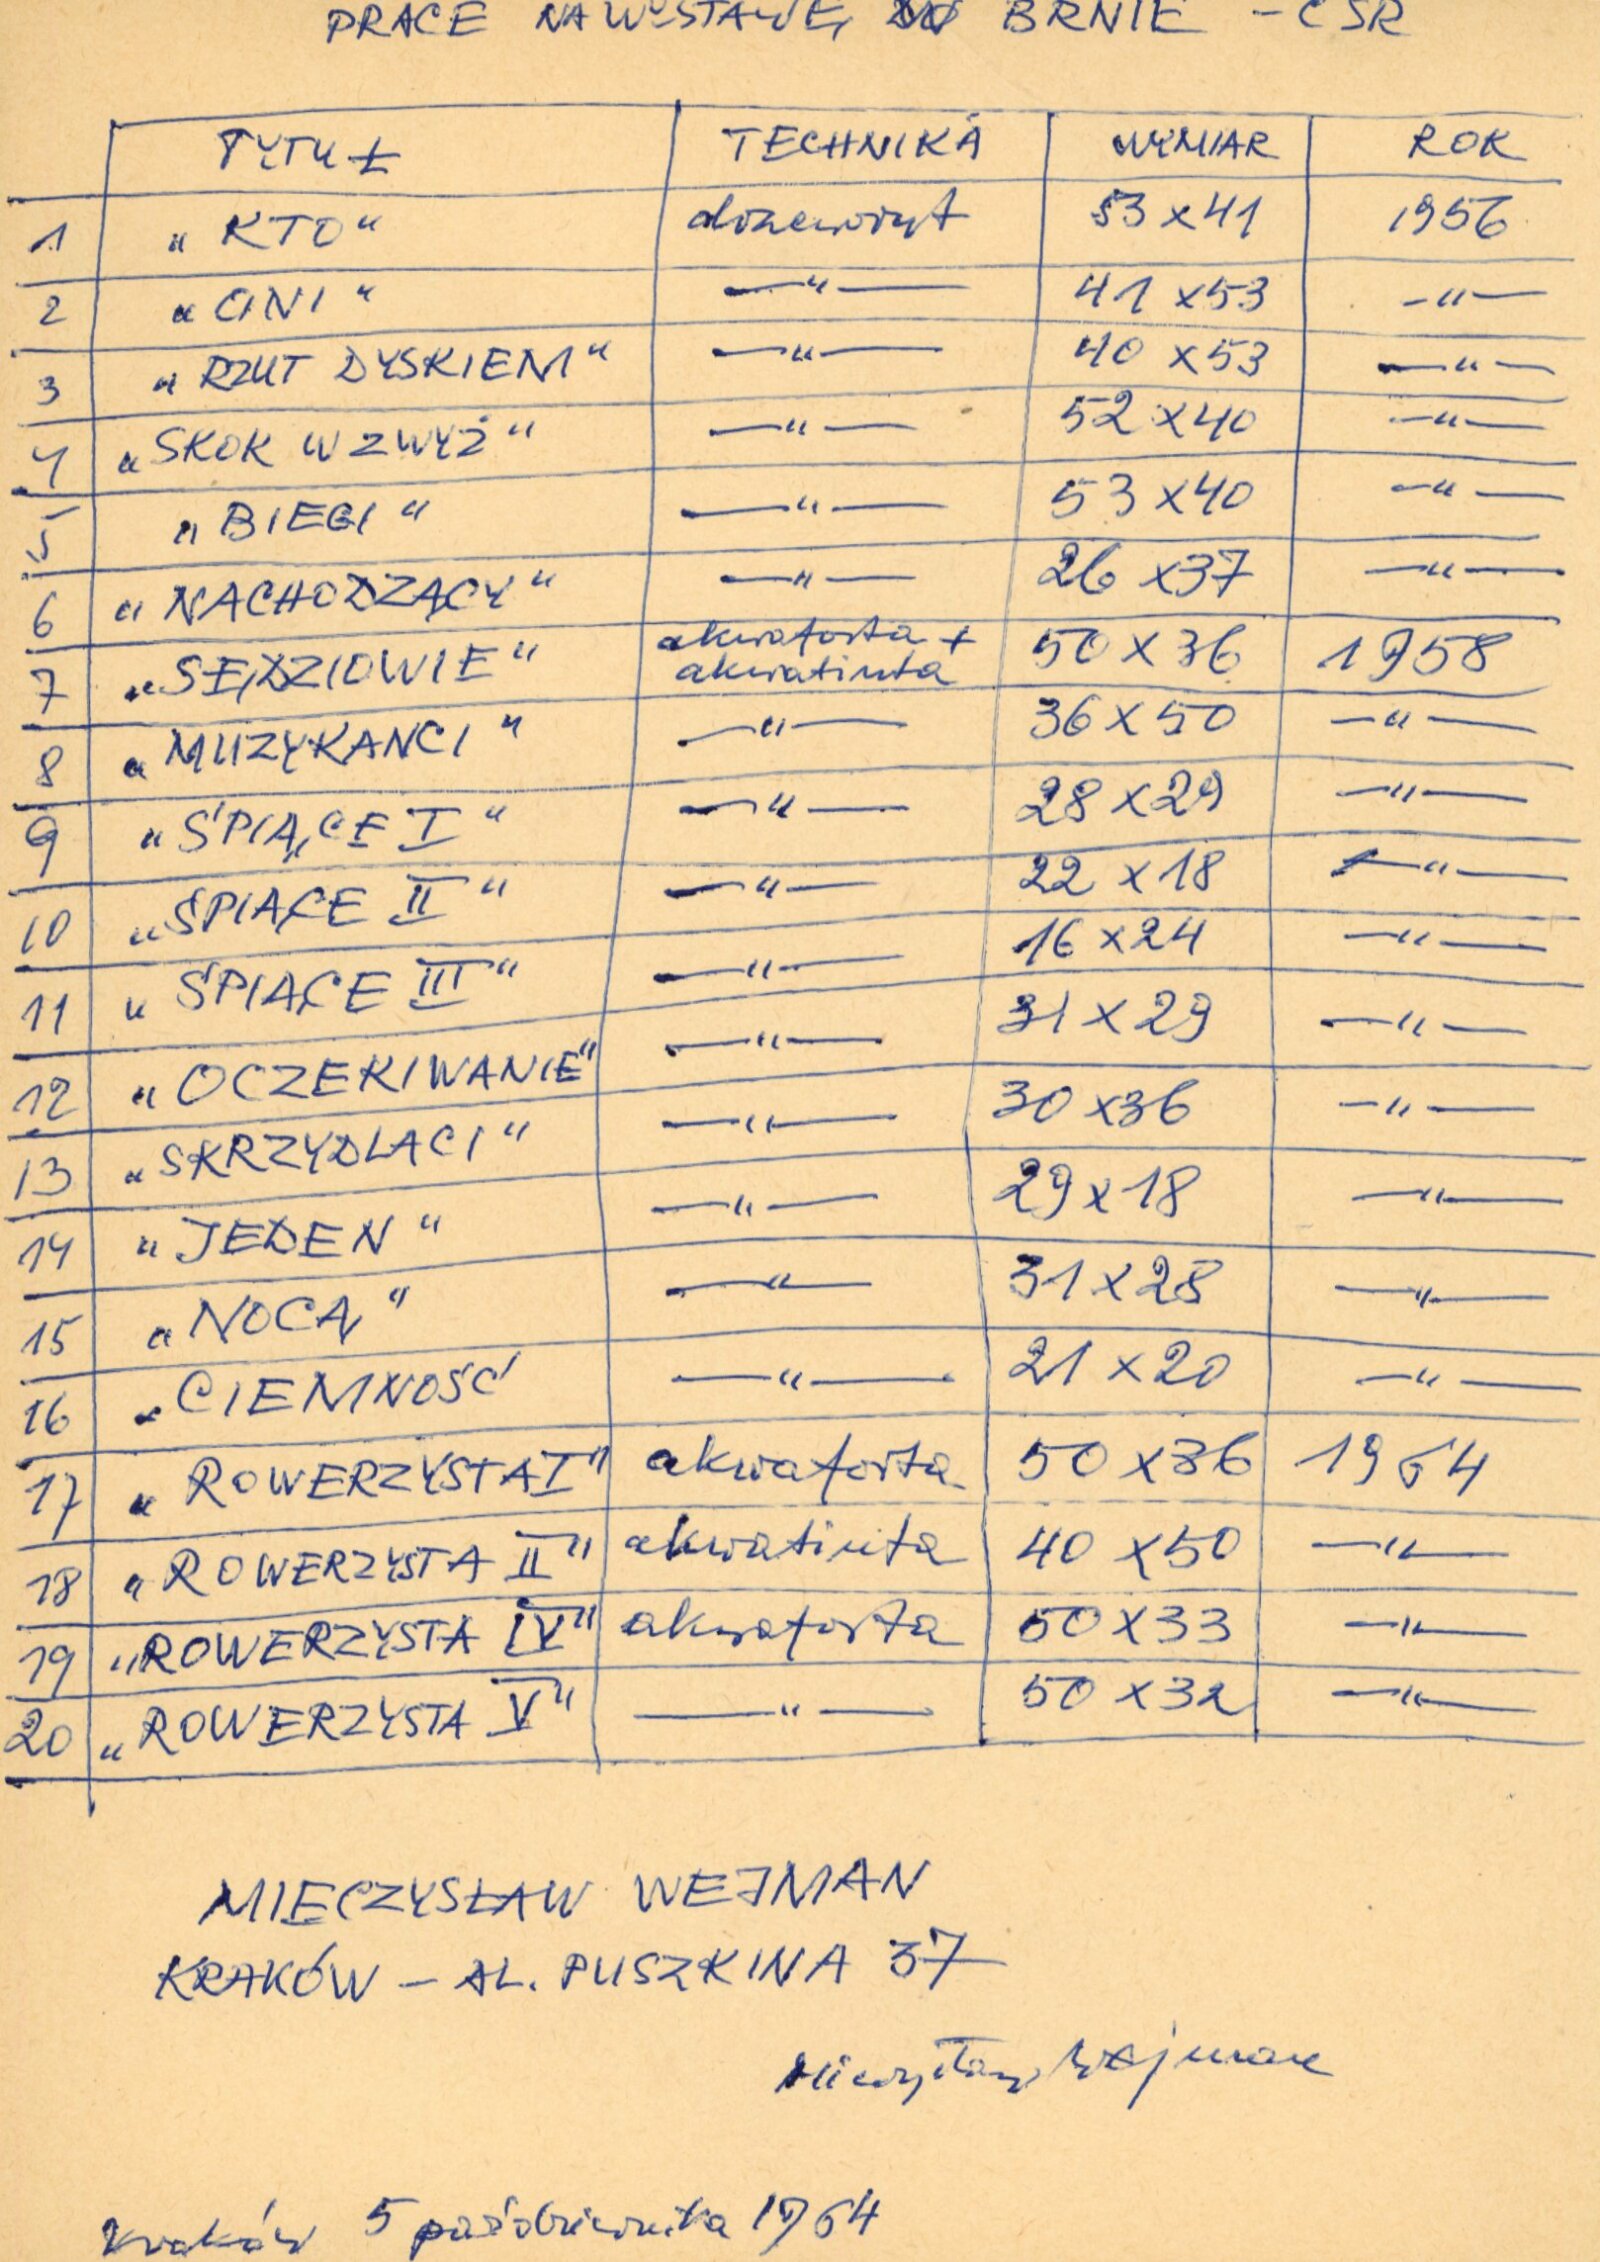 PRACE NA WYSTAWĘ W BRNIE – CSR
TYTUŁ TECHNIKA WYMIAR ROK
1 „KTO“ drzeworyt 53 x 41 1956
2 „ONI“ —“— 41 x 53 —“—
3 „RZUT DYSKIEM“ —“— 40 x 53 —“—
4 „SKOK WZWYŻ“ —“— 52 x 40 —“—
5 „BIEGI“ —“— 53 x 40 —“—
6 „NACHODZĄCY“ —“— 26 x 37 —“—
7 „SĘDZIOWIE“ akwaforta + akwatinta 50 x 36 1958
8 „MUZYKANCI“ —“— 36 x 50 —“—
9 „ŚPIĄCE I“ —“— 28 x 29 —“—
10 „ŚPIĄCE II“ —“— 22 x 18 —“—
11 „ŚPIĄCE III“ —“— 16 x 24 —“—
12 „OCZEKIWANIE“ —“— 31 x 29 —“—
13 „SKRZYDLACI“ —“— 30 x 36 —“—
14 „JEDEN“ —“— 29 x 18 —“—
15 „NOCĄ“ —“— 31 x 28 —“—
16 „CIEMNOŚĆ —“— 21 x 20 —“—
17 „ROWERZYSTA I“ akwaforta 50 x 36 1964
18 „ROWERZYSTA II“ akwatinta 40 x 50 —“—
19 „ROWERZYSTA IV“ akwaforta 50 x 33 —“—
20 „ROWERZYSTA V“ —“— 50 x 32 —“—
MIECZYSŁAW WEJMAN
KRAKÓW – AL. PUSZKINA 37
Mieczysław Wejman
Kraków 5 października 1964